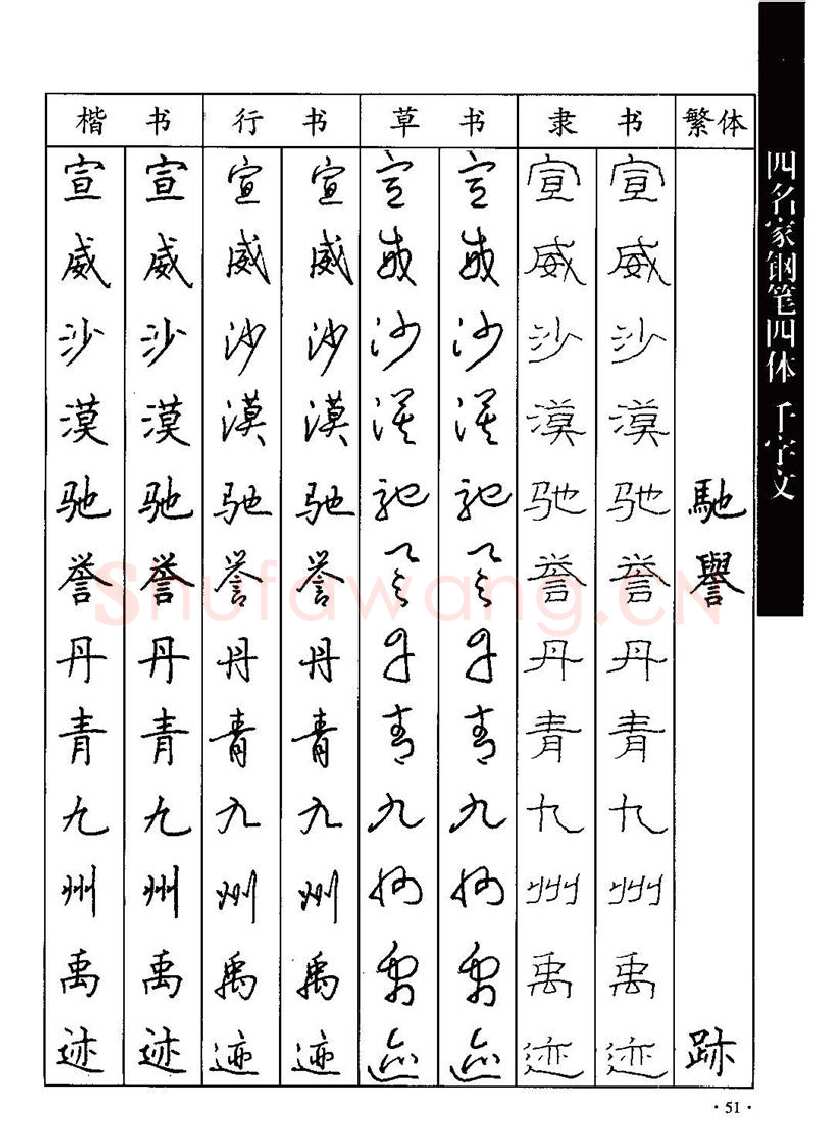 楷 书 行 书 草 书 隶 书 繁体
宣 宣 宣 宣 宣 宣 宣 宣
威 威 威 威 威 威 威 威
沙 沙 沙 沙 沙 沙 沙 沙
漠 漠 漠 漠 漠 漠 漠 漠
驰 驰 驰 驰 驰 驰 驰 驰 馳
誉 誉 誉 誉 誉 誉 誉 誉 譽
丹 丹 丹 丹 丹 丹 丹 丹
青 青 青 青 青 青 青 青
九 九 九 九 九 九 九 九
州 州 州 州 州 州 州 州
禹 禹 禹 禹 禹 禹 禹 禹
迹 迹 迹 迹 迹 迹 迹 迹 跡
四名家钢笔四体 千字文
Shufawang.CN
·51·